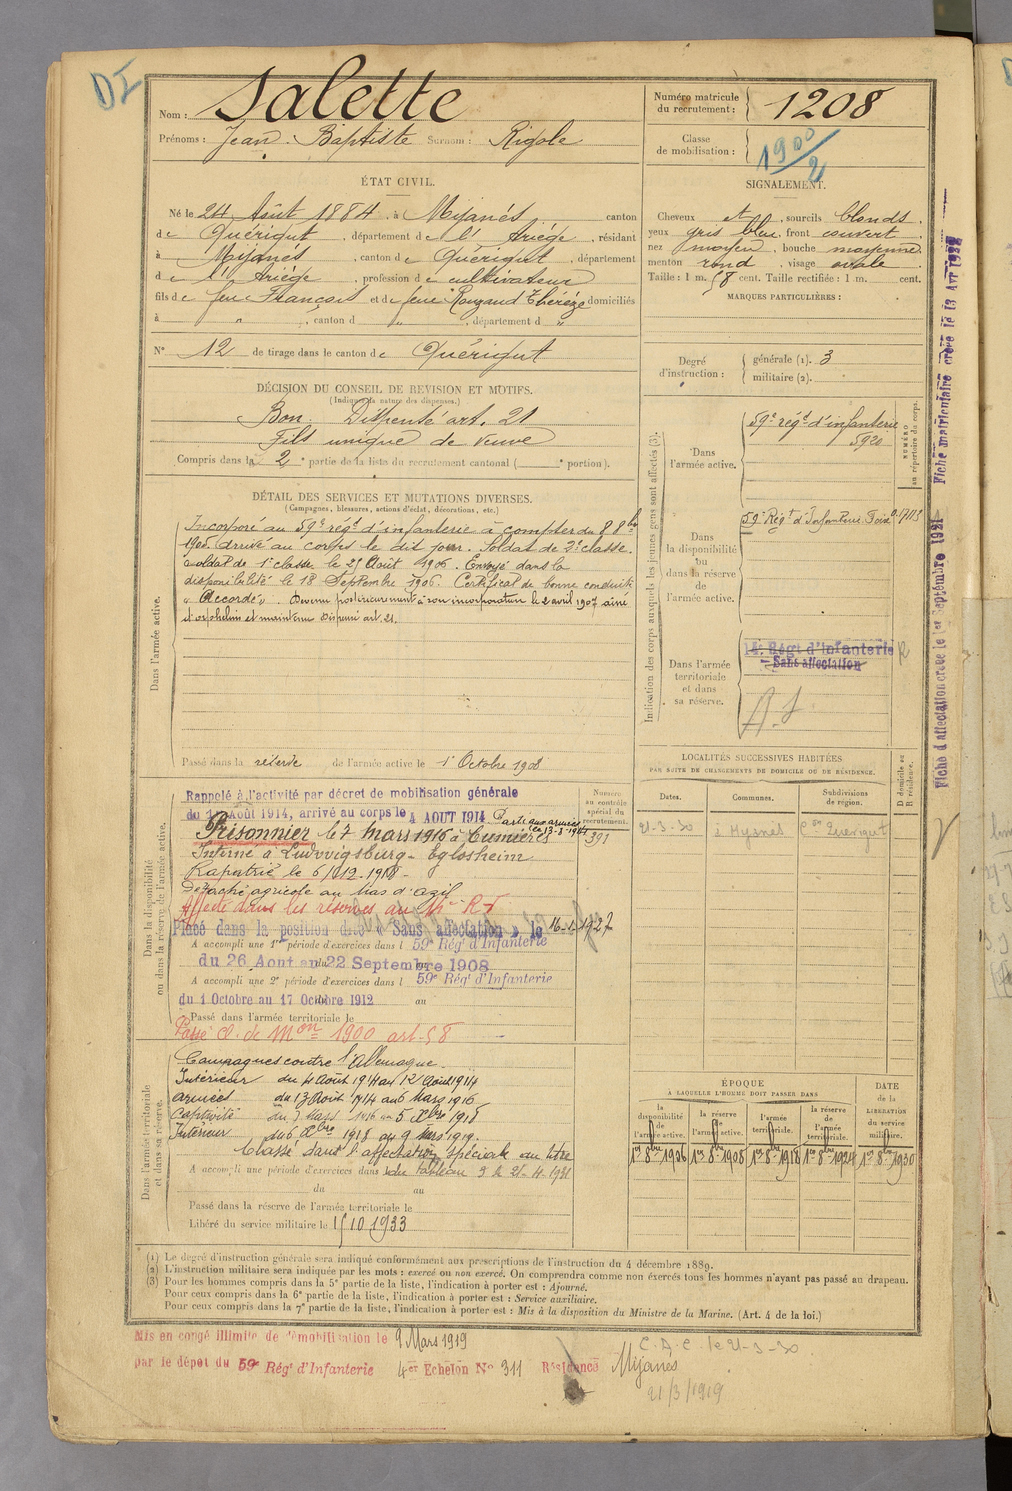 DI
Nom : Salette
Prénoms : Jean-Baptiste Surnom : Rigole
Numéro matricule du recrutement : 1208
Classe de mobilisation : 1900/2
ÉTAT CIVIL.
Né le 24 Août 1884, à Mijanès canton
de Quérigut, département de l'Ariège, résidant
à Mijanès, canton de Quérigut, département
de l'Ariège, profession de cultivateur
fils de feu François et de feue Rouzaud Thérèze domiciliés
à " , canton d " , département d "
N° 12 de tirage dans le canton de Quérigut
SIGNALEMENT.
Cheveux et sourcils blonds
yeux gris bleu, front couvert
nez moyen, bouche moyenne
menton rond, visage ovale
Taille : 1 m. 58 cent. Taille rectifiée : 1 m. cent.
MARQUES PARTICULIÈRES :
Degré d'instruction : générale (1). 3
militaire (2).
DÉCISION DU CONSEIL DE REVISION ET MOTIFS.
(Indiquer la nature des dispenses.)
Bon. Dispensé art. 21
Fils unique de veuve
Compris dans la 2e partie de la liste du recrutement cantonal ( e portion).
DÉTAIL DES SERVICES ET MUTATIONS DIVERSES.
(Campagnes, blessures, actions d'éclat, décorations, etc.)
Dans l'armée active.
Incorporé au 59e régt d'infanterie à compter du 8 8bre
1905. Arrivé au corps le dit jour. Soldat de 2e classe.
Soldat de 1e classe le 25 Août 1906. Envoyé dans la
disponibilité le 18 Septembre 1906. Certificat de bonne conduite
« Accordé ». Devenu postérieurement à son incorporation le 2 avril 1907 aîné
d'orphelins et maintenu dispensé art. 21.
Passé dans la réserve de l'armée active le 1r Octobre 1908
Indication des corps auxquels les jeunes gens sont affectés (3).
NUMÉRO au répertoire du corps.
Dans l'armée active.
59e régt d'infanterie
5920
Dans la disponibilité ou dans la réserve de l'armée active.
59e Régt d'Infanterie Foix
Dans l'armée territoriale et dans sa réserve.
14e Régt d'Infanterie
Sans affectation
LOCALITÉS SUCCESSIVES HABITÉES
PAR SUITE DE CHANGEMENTS DE DOMICILE OU DE RÉSIDENCE.
Dates. Communes. Subdivisions de région. D domicile ou R résidence.
21-3-30 à Mijanès Con Quérigut
Dans la disponibilité ou dans la réserve de l'armée active.
Numéro au contrôle spécial du recrutement.
391
Rappelé à l'activité par décret de mobilisation générale
du 1er Août 1914, arrivé au corps le 4 AOUT 1914 Parti aux armées
le 13-8-1914
Prisonnier le 7 mars 1916 à Cumières
Interné à Ludwigsburg-Eglosheim
Rapatrié le 6/12-1918-
Détaché agricole au Mas d'Azil
Affecté dans les réserves au 14e R.I
Placé dans la position dite « Sans affectation » le 16-1-1927
A accompli une 1re période d'exercices dans l 59e Régt d'Infanterie
du 26 Aout au 22 Septembre 1908
A accompli une 2e période d'exercices dans l 59e Régt d'Infanterie
du 1 Octobre au 17 Octobre 1912 au
Passé dans l'armée territoriale le
Passé cl. de Mon 1900 art-58
Dans l'armée territoriale et dans sa réserve.
Campagnes contre l'Allemagne.
Intérieur du 4 Août 1914 au 12 Août 1914
Armées du 13 Août 1914 au 6 Mars 1916
Captivité du 7 Mars 1916 au 5 Xbre 1918
Intérieur du 6 Xbre 1918 au 9 Mars 1919.
Classé dans l'affectation spéciale au titre
A accompli une période d'exercices dans l du tableau 3 le 21-4-1931
du au
Passé dans la réserve de l'armée territoriale le
Libéré du service militaire le 15 10 1933
ÉPOQUE
A LAQUELLE L'HOMME DOIT PASSER DANS
la disponibilité de l'armée active. la réserve de l'armée active. l'armée territoriale. la réserve de l'armée territoriale. DATE de la LIBÉRATION du service militaire.
1er 8bre 1906 1er 8bre 1908 1er 8bre 1918 1er 8bre 1924 1er 8bre 1930
(1) Le degré d'instruction générale sera indiqué conformément aux prescriptions de l'instruction du 4 décembre 1889.
(2) L'instruction militaire sera indiquée par les mots : exercé ou non exercé. On comprendra comme non éxercés tous les hommes n'ayant pas passé au drapeau.
(3) Pour les hommes compris dans la 5e partie de la liste, l'indication à porter est : Ajourné.
Pour ceux compris dans la 6e partie de la liste, l'indication à porter est : Service auxiliaire.
Pour ceux compris dans la 7e partie de la liste, l'indication à porter est : Mis à la disposition du Ministre de la Marine. (Art. 4 de la loi.)
Mis en congé illimité de démobilisation le 9 Mars 1919
par le dépot du 59e Régt d'Infanterie 4er Echelon N° 311 Résidence Mijanès
C.A.C. le 21-3-30
21/3/1919
Fiche d'affectation créée le 1er Septembre 1921
Fiche matriculaire créée le 13 Avr 1932